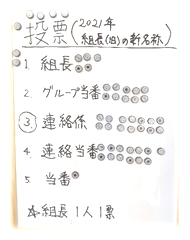 投票(2021年
組長(旧)の新名称)
1. 組長
2. グループ当番
3. 連絡係
4. 連絡当番
5. 当番
☆組長1人1票